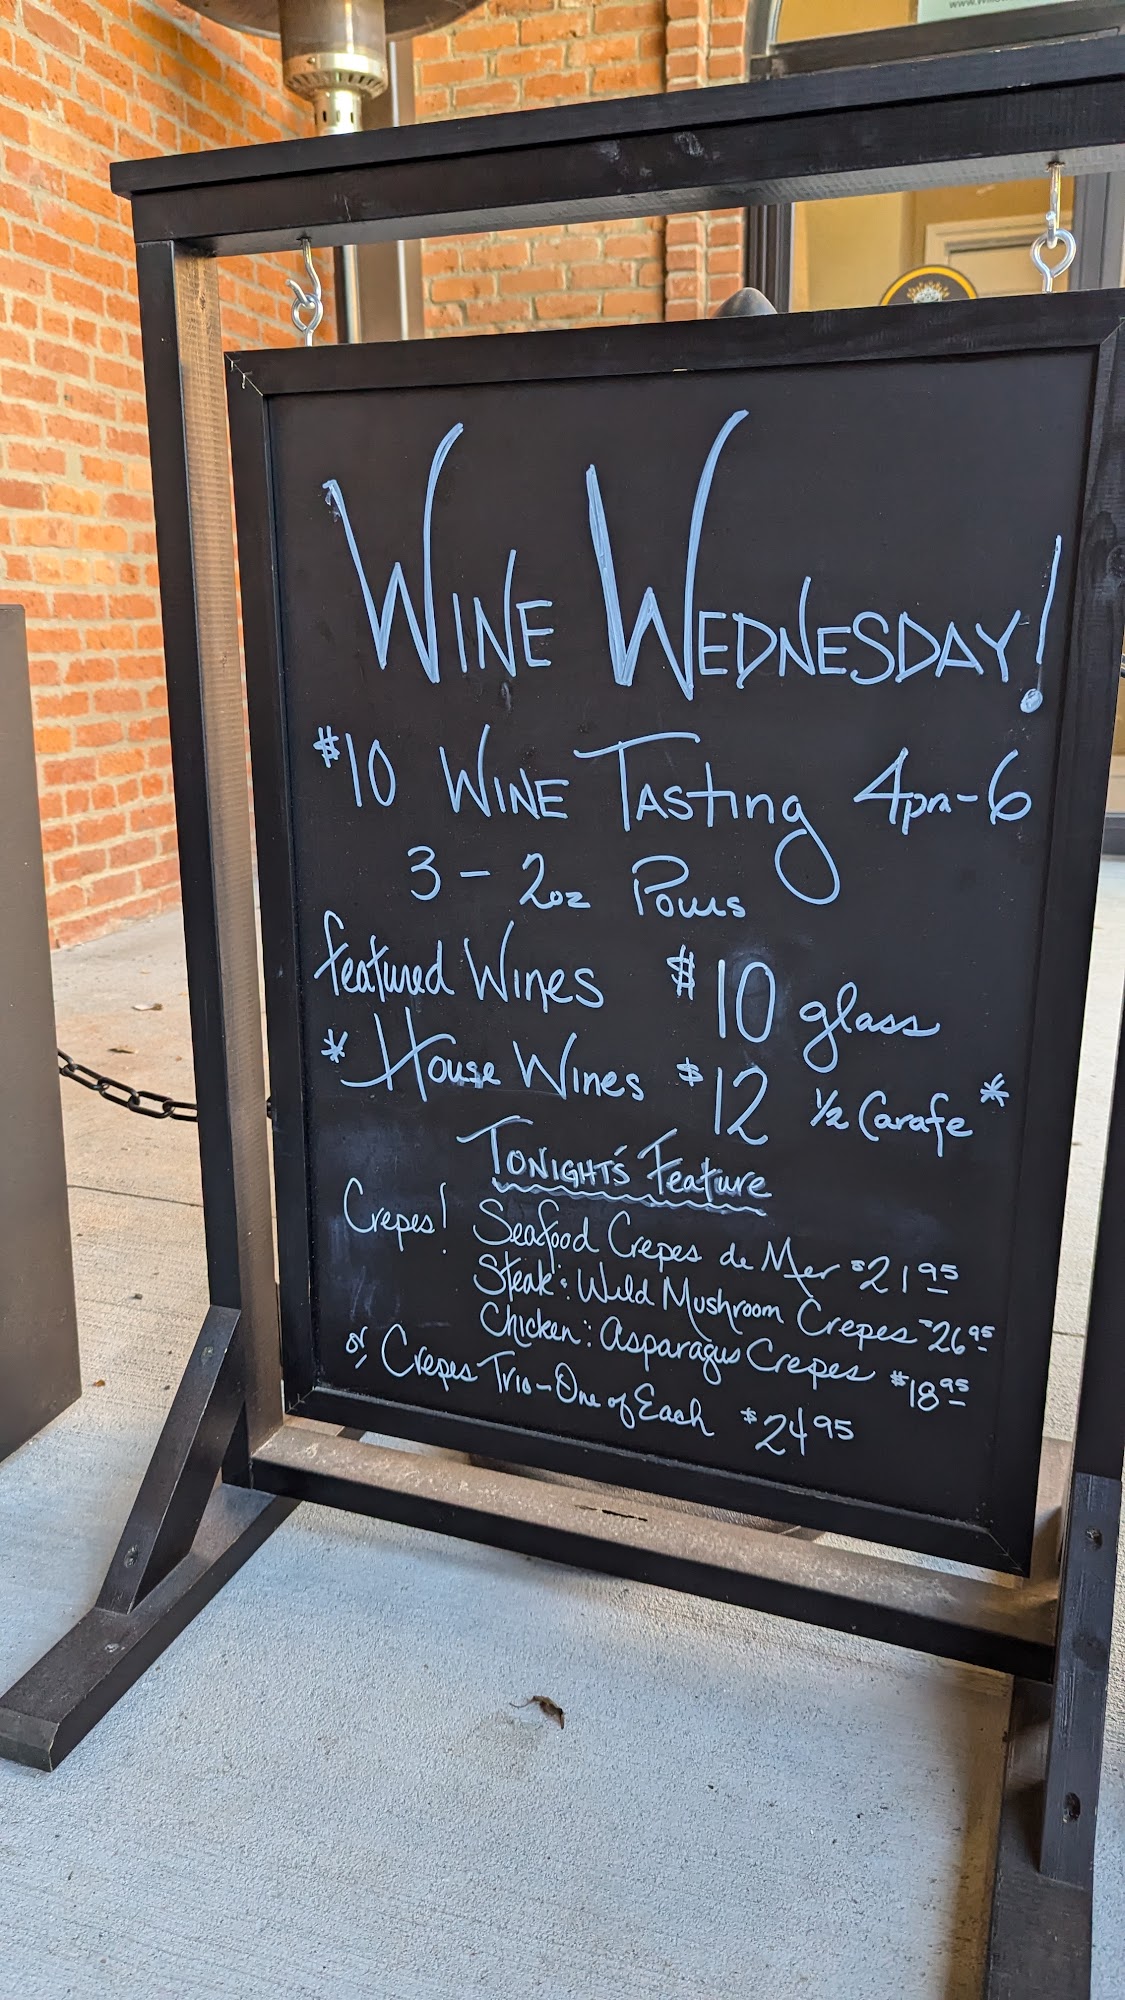 Wine Wednesday!
$10 Wine Tasting 4pm-6
3 - 2oz Pours
Featured Wines $10 glass
* House Wines $12 1/2 Carafe *
Tonight's Feature
Crepes! Seafood Crepes de Mer $21.95
Steak & Wild Mushroom Crepes $26.95
Chicken & Asparagus Crepes $18.95
or Crepes Trio - One of Each $24.95